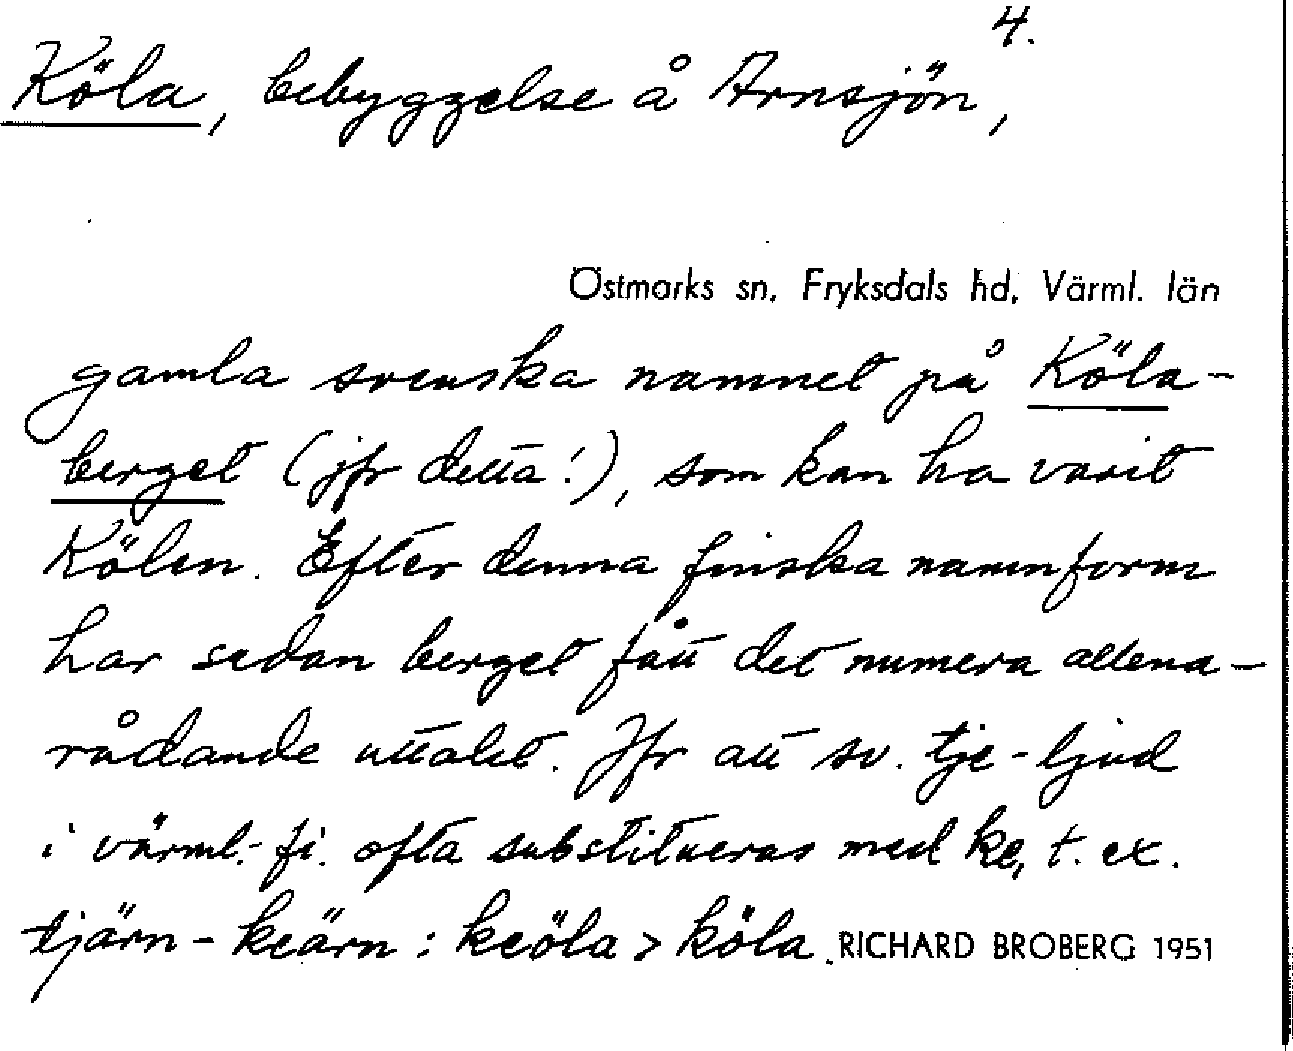 4.
Köla, bebyggelse å Arnsjön,
Östmarks sn, Fryksdals hd, Värml. län
gamla svenska namnet på Köla-
berget (jfr detta!), som kan ha varit
Kölen. Efter denna finska namnform
har sedan berget fått det numera allena-
rådande uttalet. Jfr att sv. tje-ljud
i värml.-fi. ofta substitueras med ke, t. ex.
tjärn - keärn : keöla > köla. RICHARD BROBERG 1951